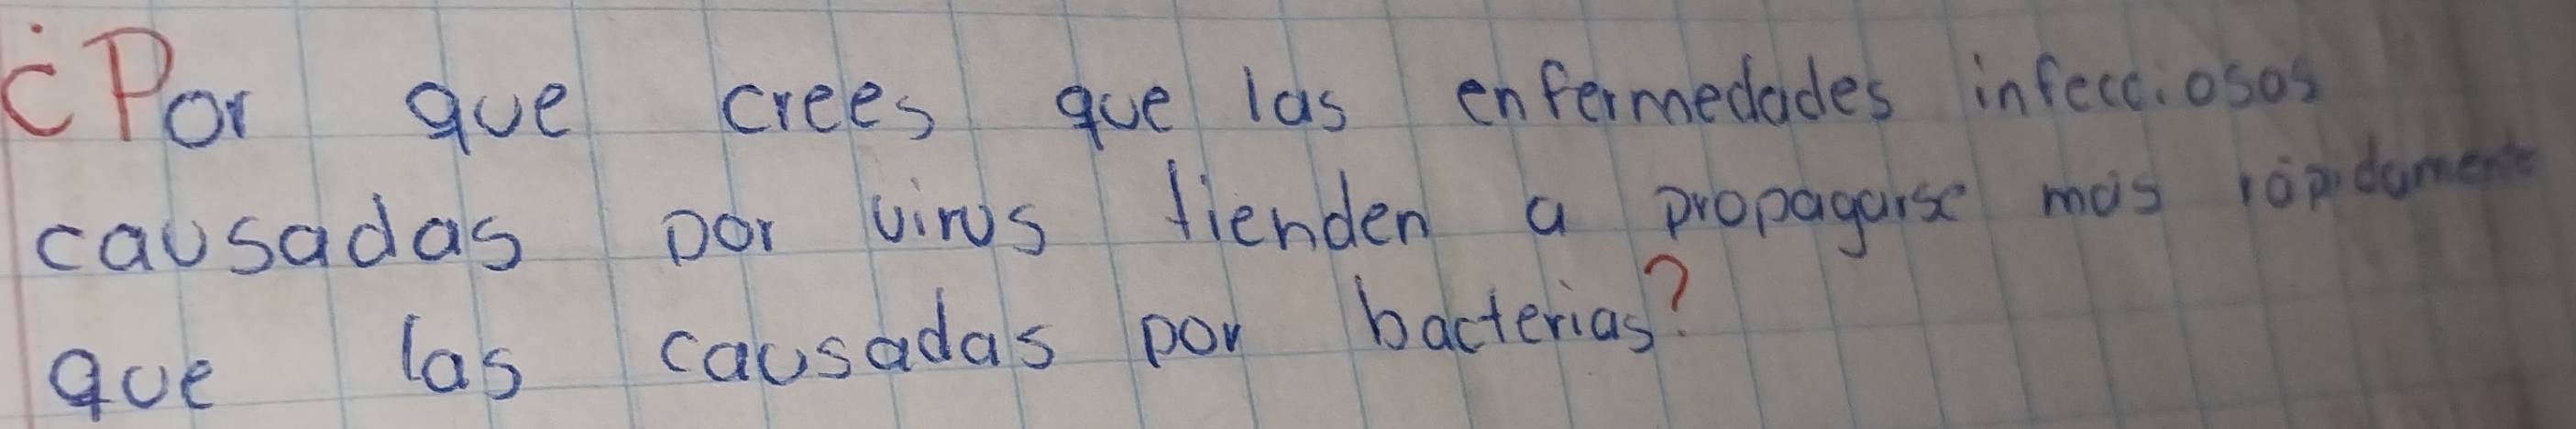 ¿Por que crees que las enfermedades infecciosos
causadas por virus tienden a propagarse mas rápidamente
que las causadas por bacterias?